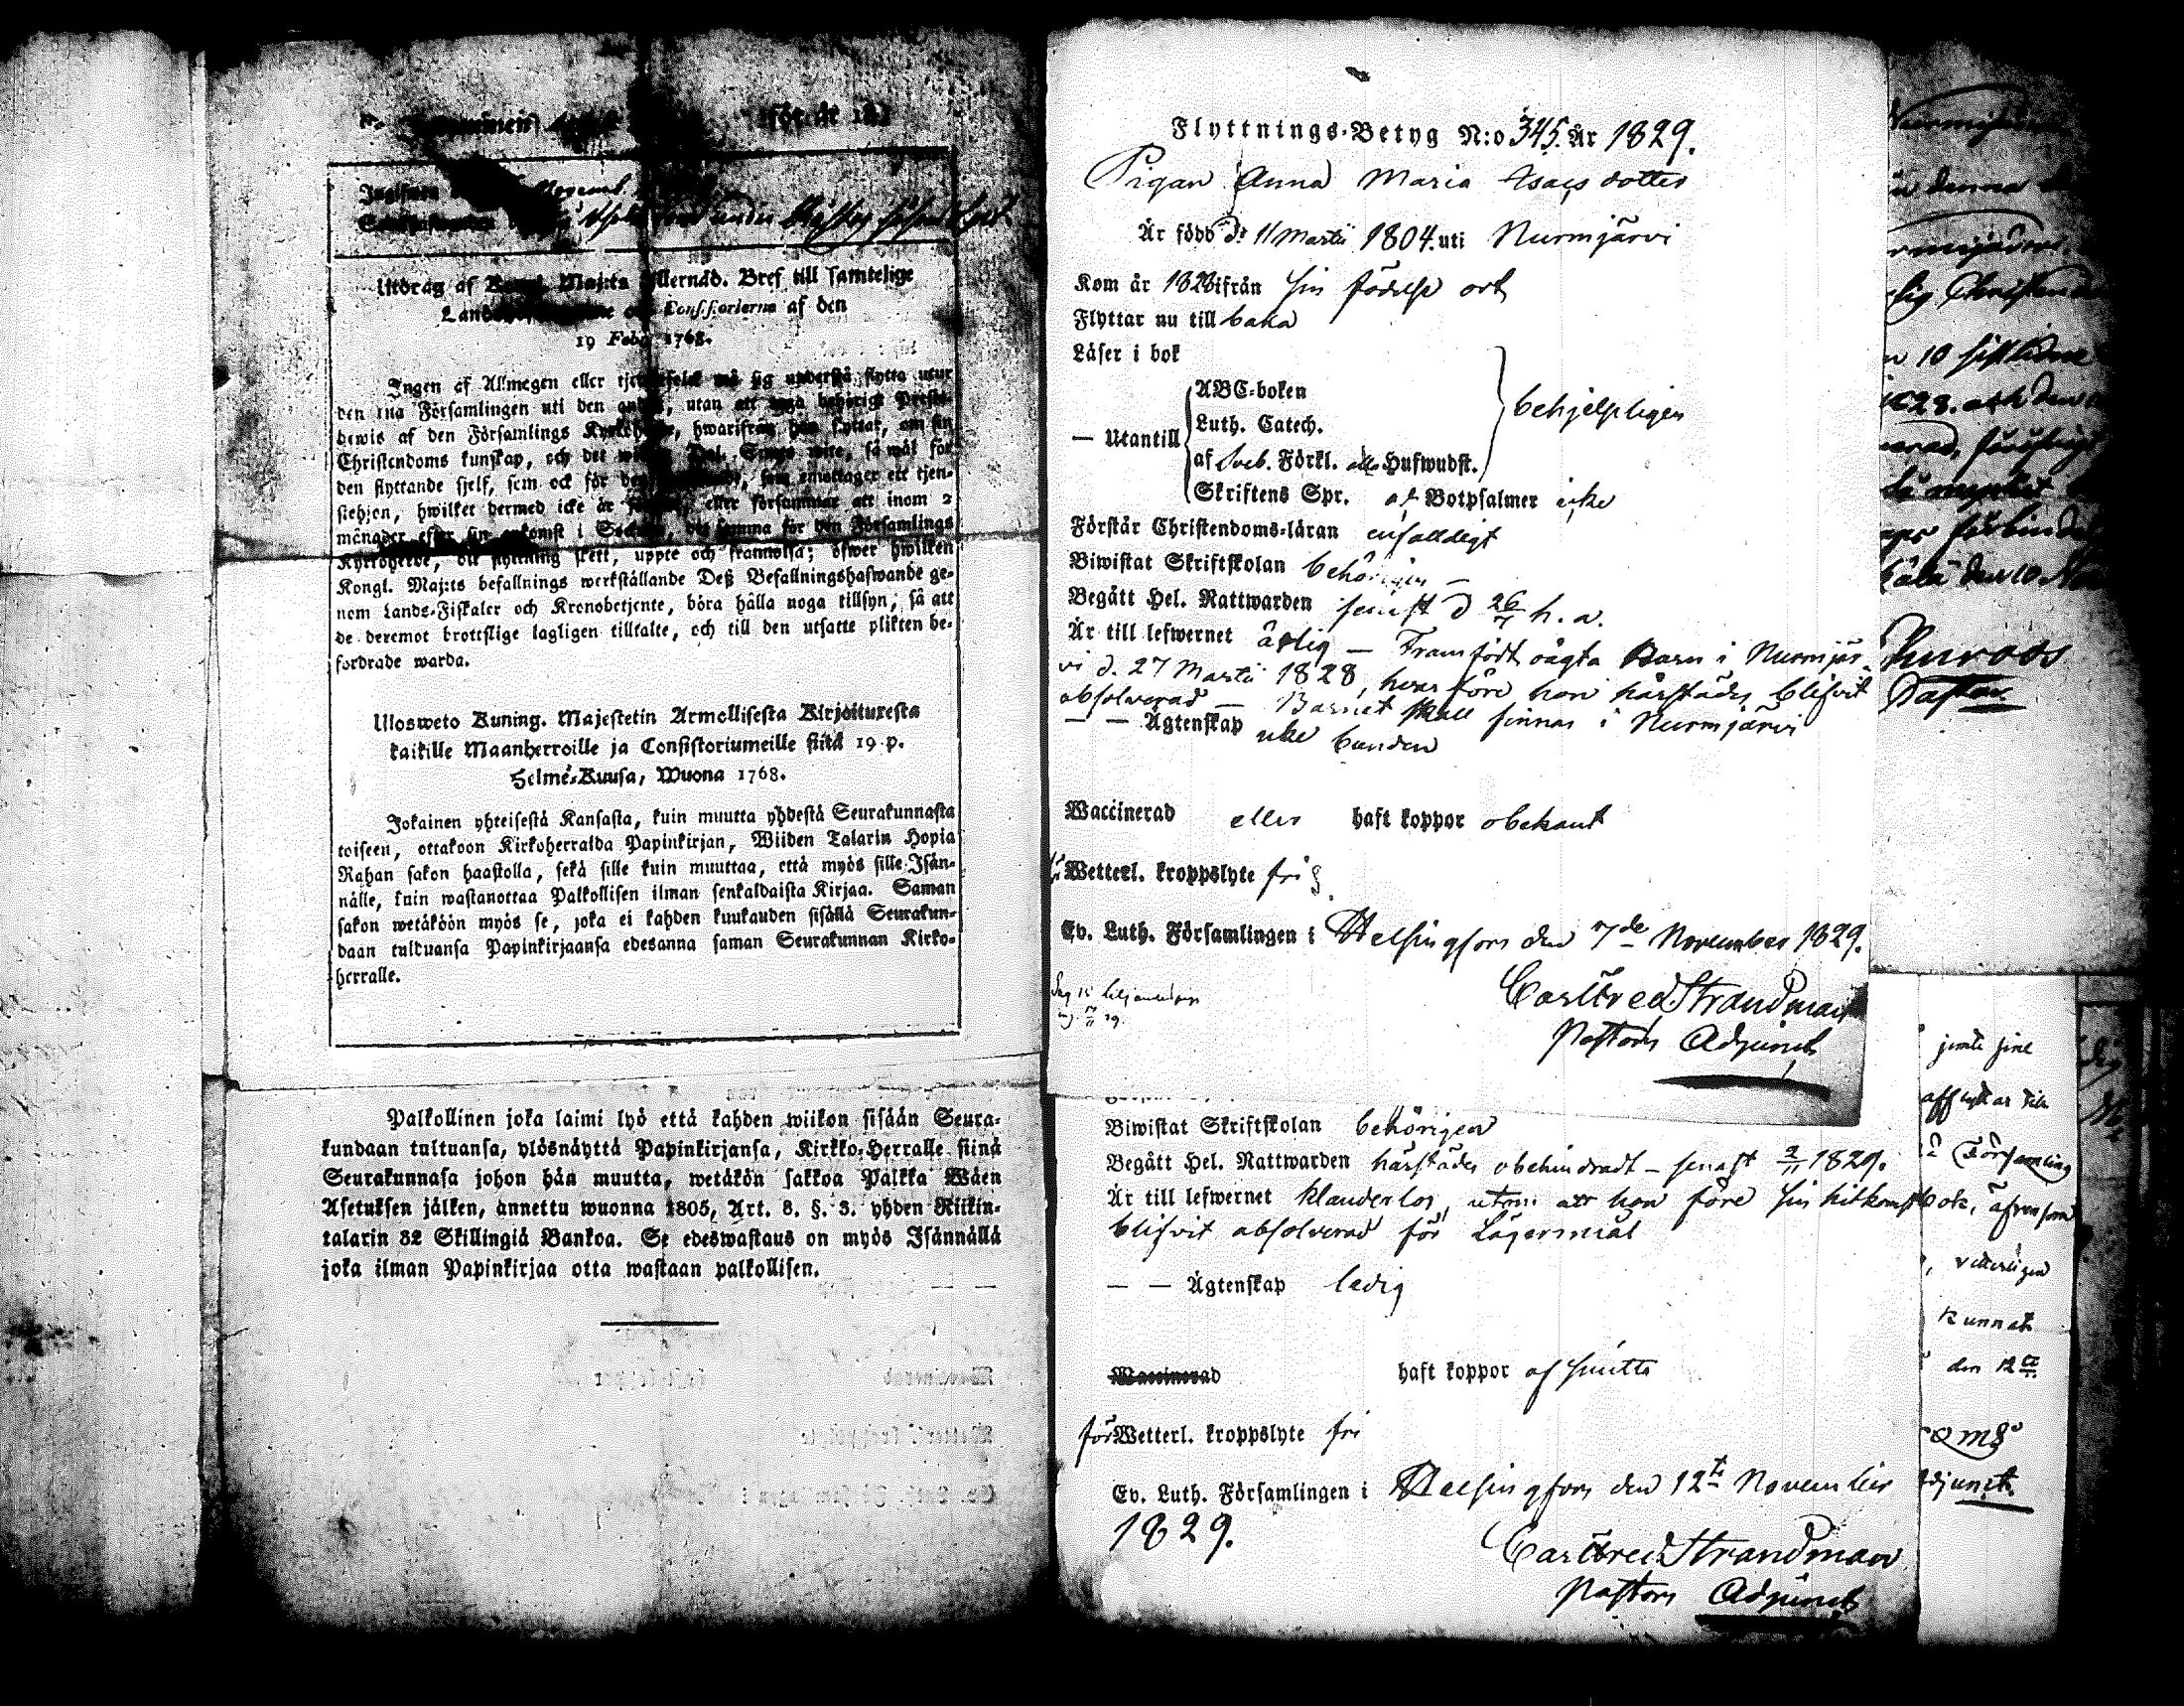 för år 182
Utdrag af Kongl. Maj:ts Allernåd. Bref till samtelige
Consistorierne af den
19 Febr. 1768.
Ingen af Allmogen eller tjenstefolck må sig understå flytta utur
den ena Församlingen uti den andra, utan att
bewis af den Församlings Kyrkoherde, hwarifrån han flyttat, om sin
Christendoms kunskap, och det wid Dal. S:mts wite, så wäl för
den flyttande sjelf, som ock för den som emottager ett tjen-
stehjon, hwilket dermed icke är eller försummar att inom 2
månader efter sin ankomst i Socknen, det samma för den Församlings
Kyrkoherde, dit flyttning skett, uppte och framwisa; öfwer hwilken
Kongl. Maj:ts befallnings werkställande Deß Befallningshafwande ge-
nom Lands-Fiskaler och Kronobetjente, böra hålla noga tillsyn, så att
de deremot brottslige lagligen tilltalte, och till den utsatte plikten be-
fordrade warda.
Ulosweto Kuning. Majestetin Armollisesta Kirjoituxesta
kaikille Maanherroille ja Consistoriumeille siitä 19 p.
Helme-Kuusa, Wuona 1768.
Jokainen yhteisestä Kansasta, kuin muutta yhdestä Seurakunnasta
toiseen, ottakoon Kirkoherralda Papinkirjan, Wiiden Talarin Hopia
Rahan sakon haastolla, sekä sille kuin muuttaa, että myös sille Isän-
nälle, kuin wastanottaa Palkollisen ilman senkaldaista Kirjaa. Saman
sakon wetäköön myös se, joka ei kahden kuukauden sisällä Seurakun-
daan tulduansa Papinkirjaansa edesanna saman Seurakunnan Kirko-
herralle.
Palkollinen joka laimi lyö että kahden wiikon sisään Seura-
kundaan tultuansa, ylösnäyttä Papinkirjansa, Kirkko-Herralle siinä
Seurakunnasa johon hän muutta, wetäkön sakkoa Palkka Wäen
Asetuksen jälken, annettu wuonna 1805, Art. 8. §. 3. yhden Riikin-
talarin 32 Skillingiä Bankoa. Se edeswastaus on myös Isännällä
joka ilman Papinkirjaa otta wastaan palkollisen.
Flyttnings-Betyg N:o 345. År 1829.
Pigan Anna Maria Isacsdotter
Är född d: 11 Martii 1804. uti Nurmjärvi
Kom år 1828 ifrån sin födelse ort
Flyttar nu till baka
Läser i bok
ABC-boken
Luth. Catech.
— Utantill behjelpligen
af Sveb. Förkl. alla Hufwudst.
Skriftens Spr. af Botpsalmer icke
Förstår Christendoms-läran enfalldigt
Biwistat Skriftskolan behörigen —
Begått Hel. Nattwarden senast d 26/7 h. a.
Är till lefwernet ärlig — Framfödt oägta Barn i Nurmjär-
vi d. 27 Martii 1828, hvarföre hon härstädes blifvit
absolverad — Barnet skall finnas i Nurmjärvi
— — Ägtenskap icke bunden
Waccinerad eller haft koppor obekant
för Wetterl. kroppslyte fri
Ev. Luth. Församlingen i Helsingfors den 7de November 1829.
Carl Fred Strandman
Pastors Adjunct
Biwistat Skriftskolan behörigen
Begått Hel. Nattwarden härstädes obehindradt — senast 2/11 1829.
Är till lefwernet klanderlös, utom att hon före sin hitkomst
blifvit absolverad för Lägersmål
— — Ägtenskap ledig
Waccinerad haft koppor af smitta
för Wetterl. kroppslyte fri
Ev. Luth. Församlingen i Helsingfors den 12te November
1829.
Carl Fred Strandman
Pastors Adjunct
denna
10 sistlidne
Pastor
jemte sine
afflyttar till
Församling
bok, äfvensom
vitterligen
kunnat
den 12te
djunct.